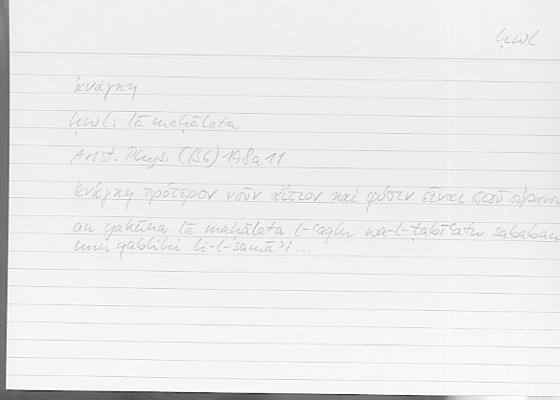 ḥwl
ἀνάγκη
ḥwl: lā maḥālata
Arist. Phys. (B6) 198a11
ἀνάγκη πρότερον νοῦν αἴτιον καὶ φύσιν εἶναι τοῦ οὐρανοῦ
an yakūna lā maḥālata l-ʿaqlu wa-l-ṭabīʿatu sababan
min qablihi li-l-samāʾi...